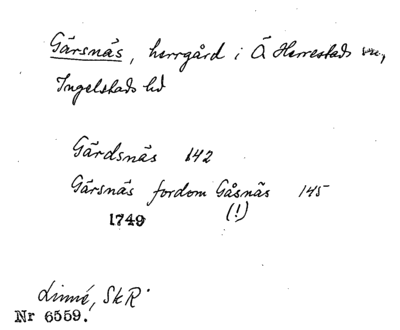 Gärsnäs, herrgård i Ö Herrestads sn,
Ingelstads hd
Gärdsnäs 142
Gärsnäs fordom Gåsnäs 145
1749 (!)
Linné, SkR
Nr 6559.